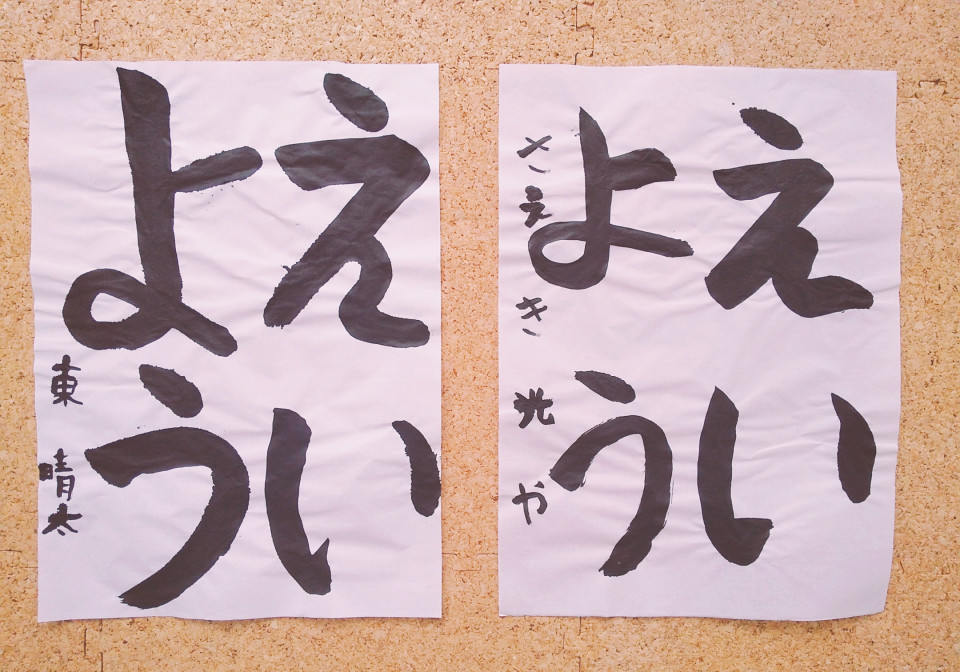 えい
よう
東 晴太
えい
よう
さえき 光や